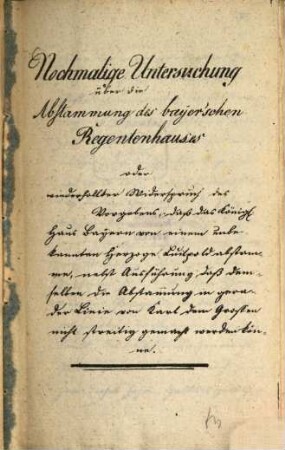 Nochmalige Untersuchung
über die
Abstammung des bayer'schen
Regentenhauses
oder
wiederhollter Widerspruch des
Vorgebens, daß das Königl
Haus Bayern von einem Unbe-
kannten Herzoge Luitpold abstam-
me, nebst Ausführung, daß dem-
selben die Abstam̄ung in gera-
der Linie von Karl dem Grossen
nicht streitig gemacht werden kön-
ne.